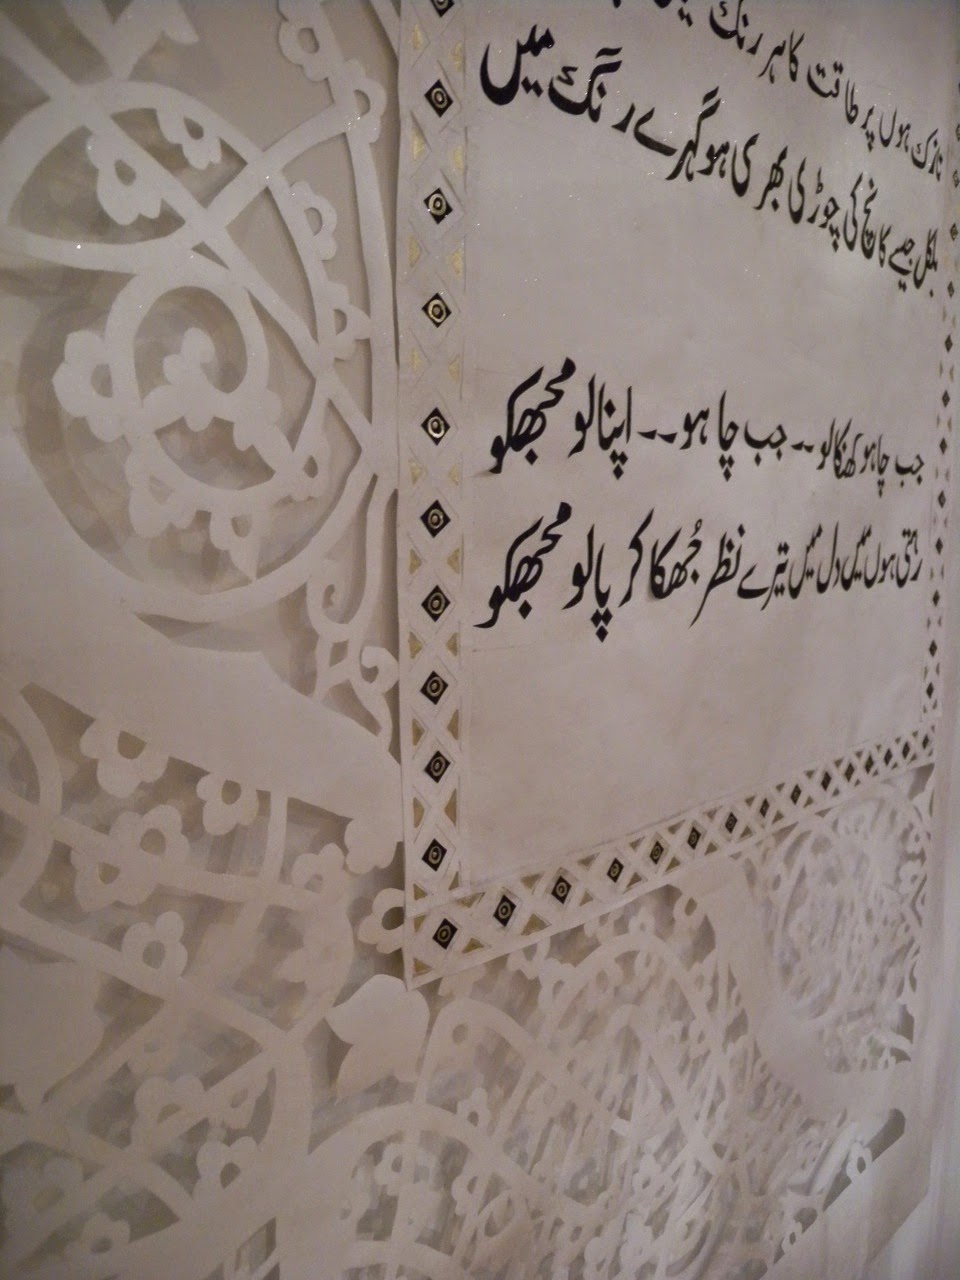 نازک ہوں پر طاقت کا ہر رنگ
بالکل جیسے کانچ کی چوڑی بھری ہو گہرے رنگ میں
جب چاہو کھنکالو -- جب چاہو -- اپنالو مجھکو
رہتی ہوں میں دل میں تیرے نظر جُھکا کر پالو مجھکو